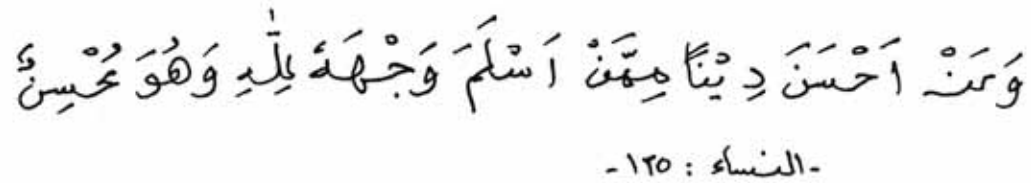 وَمَنْ اَحْسَنَ دِيْنًا مِمَّنْ اَسْلَمَ وَجْهَهٗ لِلّٰهِ وَهُوَ مُحْسِنٌ
-النساء : ١٢٥-